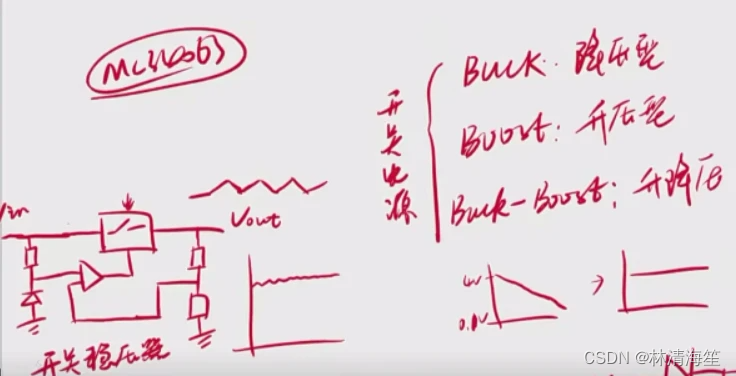 MC34063
开关电源
Buck: 降压型
Boost: 升压型
Buck-Boost: 升降压
Vin
Vout
4V
开关稳压器
CSDN @林清海笙